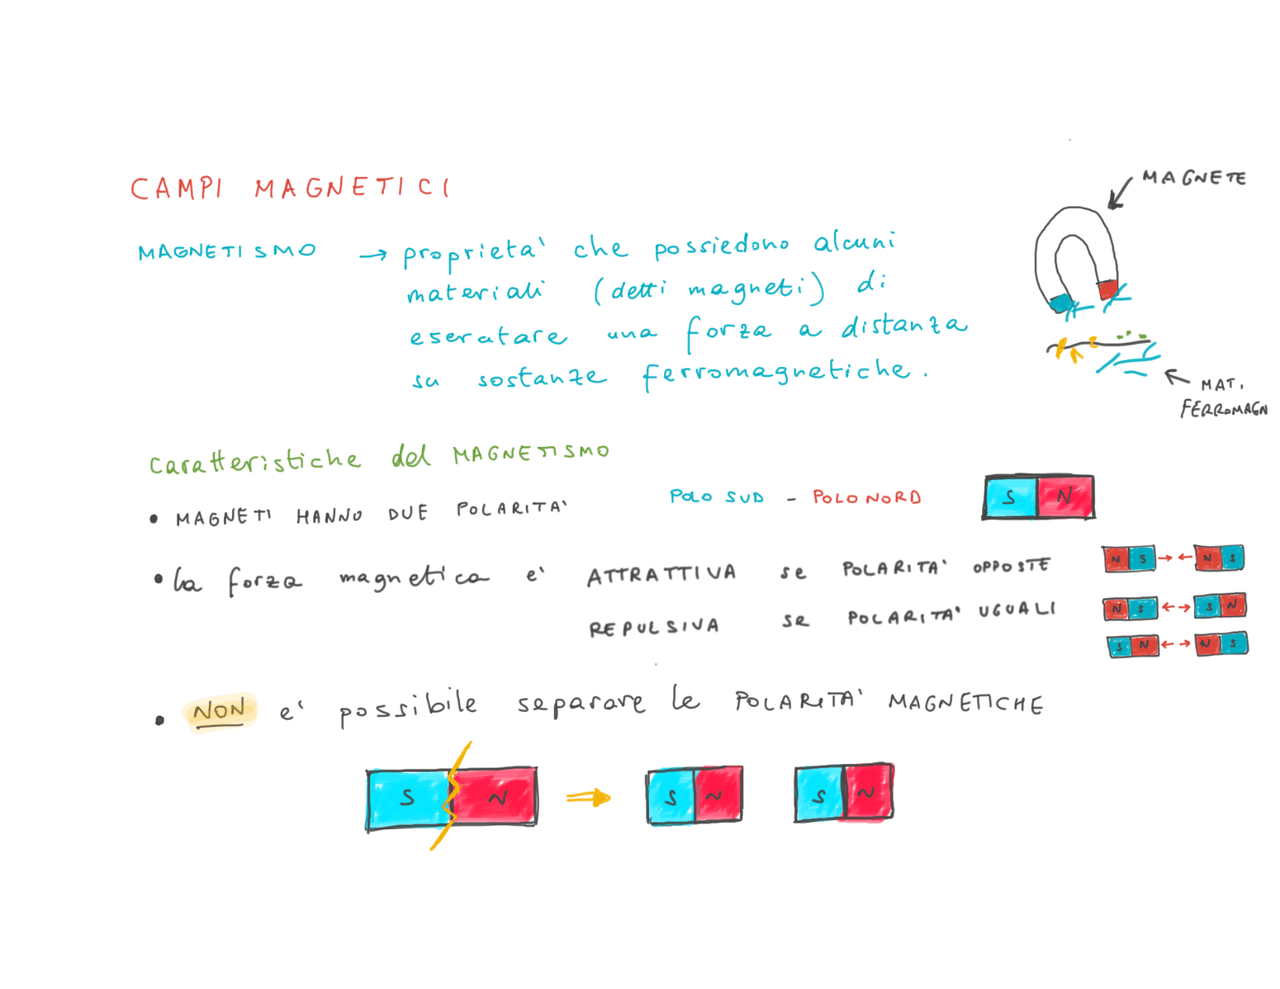 CAMPI MAGNETICI
MAGNETE
MAGNETISMO → proprietà che possiedono alcuni
materiali (detti magneti) di
esercitare una forza a distanza
su sostanze ferromagnetiche.
MAT.
FERROMAGN
Caratteristiche del MAGNETISMO
• MAGNETI HANNO DUE POLARITA' POLO SUD - POLO NORD S N
• la forza magnetica e' ATTRATTIVA se POLARITA' OPPOSTE N S → ← N S
REPULSIVA se POLARITA' UGUALI N S ← → S N
S N ← → N S
• NON e' possibile separare le POLARITA' MAGNETICHE
S N ⇒ S N S N